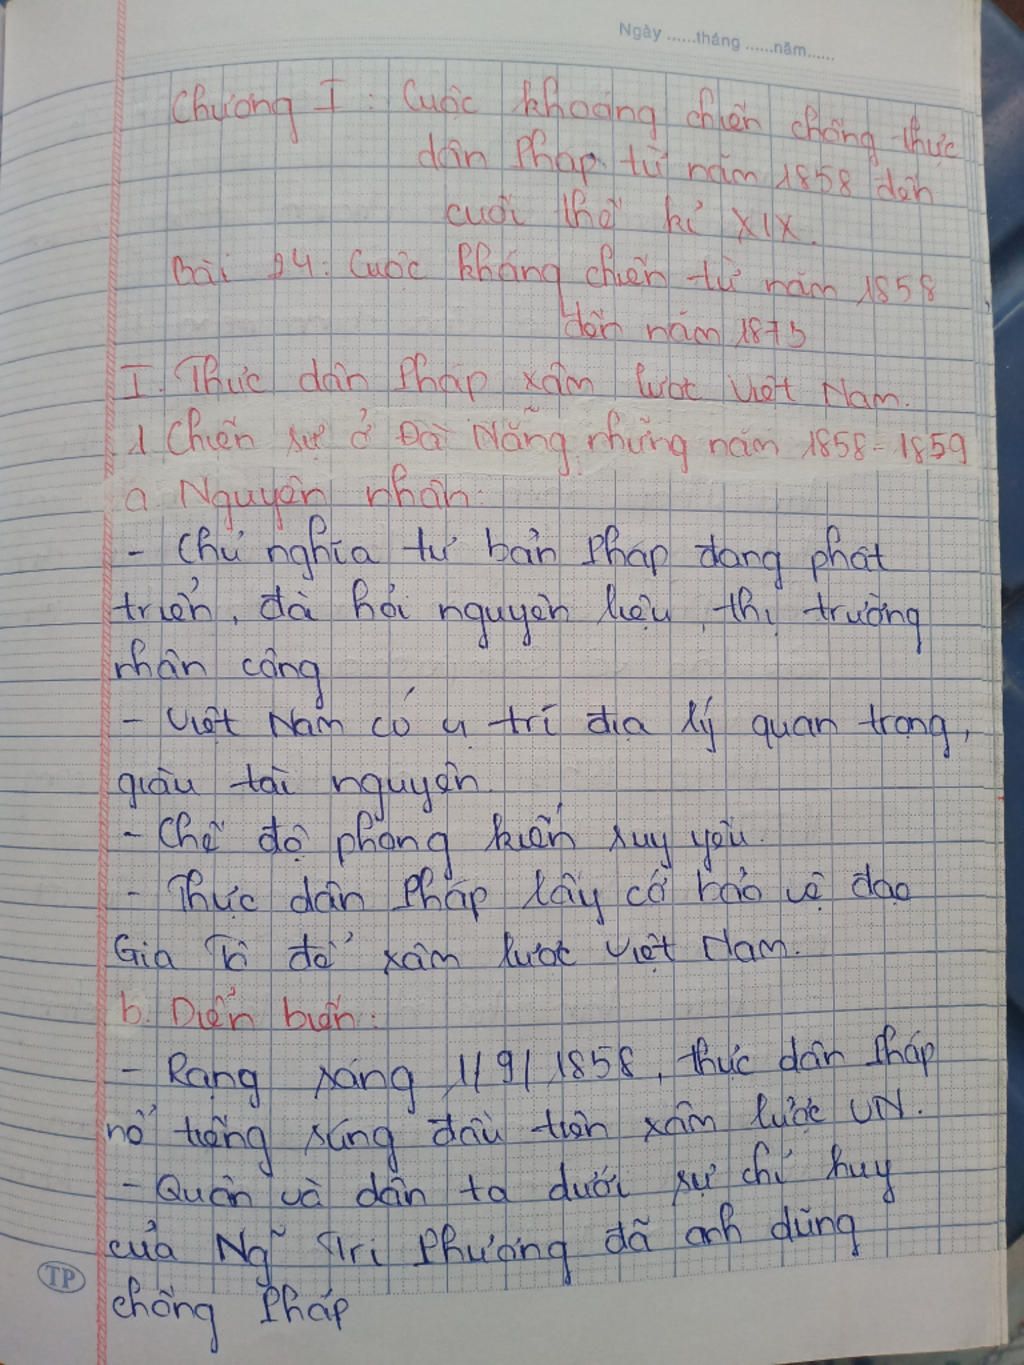 Ngày ......tháng ......năm......
Chương I : Cuộc khoáng chiến chống thực
dân Pháp từ năm 1858 đến
cuối thế kỉ XIX.
Bài 24: Cuộc kháng chiến từ năm 1858
đến năm 1873
I. Thực dân Pháp xâm lược Việt Nam.
1 Chiến sự ở Đà Nẵng những năm 1858-1859
a. Nguyên nhân:
- Chủ nghĩa tư bản Pháp đang phát
triển, đà hỏi nguyên liệu, thị trường
nhân công
- Việt Nam có vị trí địa lý quan trọng,
giàu tài nguyên.
- Chế độ phong kiến suy yếu.
- Thực dân Pháp lấy cớ bảo vệ đạo
Gia Tô để xâm lược Việt Nam.
b. Diễn biến:
- Rạng sáng 1/9/1858, thực dân Pháp
nổ tiếng súng đầu tiên xâm lược VN.
- Quân và dân ta dưới sự chỉ huy
của Ng~ Tri Phương đã anh dũng
chống Pháp
TP